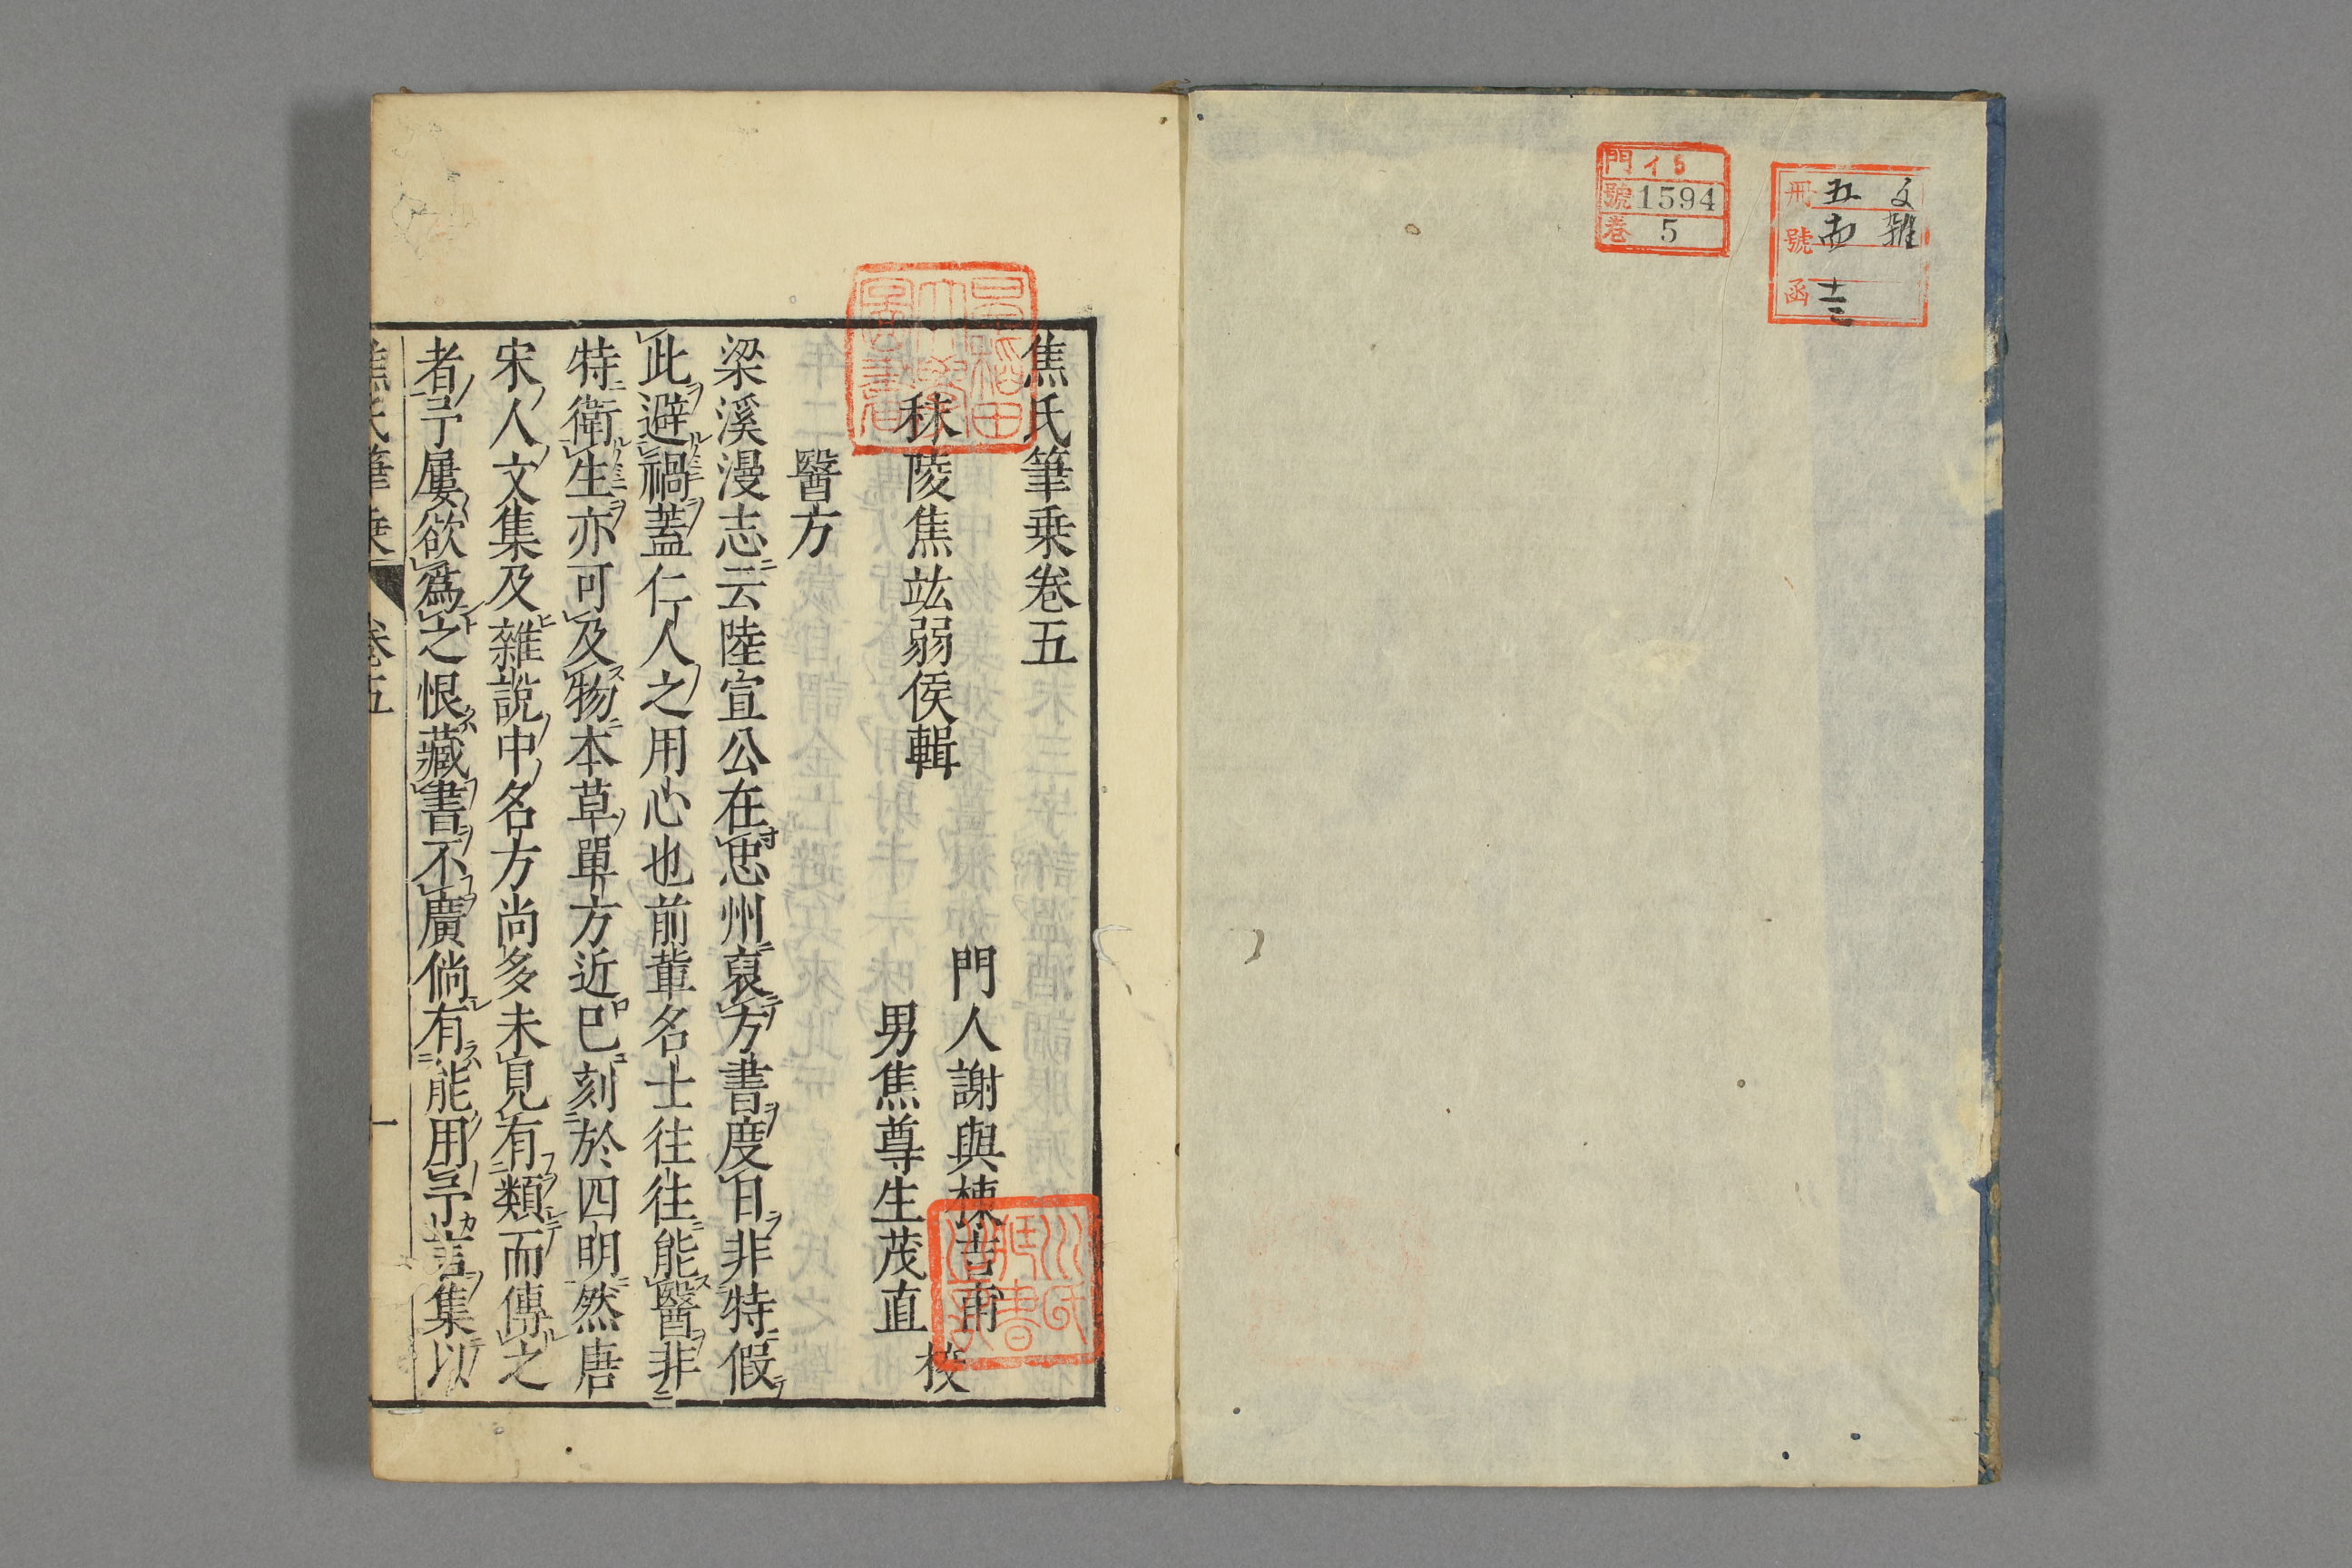 文雜
冊 五
號
函 十三
門 イ5
號 1594
卷 5
焦氏筆乗卷五
早稲田大學圖書
門人謝與棟吉甫
秣陵焦竑弱侯輯
校
男焦尊生茂直
醫方
梁溪漫志云陸宣公在忠州裒方書度日非特假
此避禍蓋仁人之用心也前輩名士往往能醫非
特衛生亦可及物本草單方近巳刻於四明然唐
宋人文集及雜說中名方尚多未見有類而傳之
者予屢欲爲之恨藏書不廣倘有能用予言集以
焦氏筆乗 卷五 一